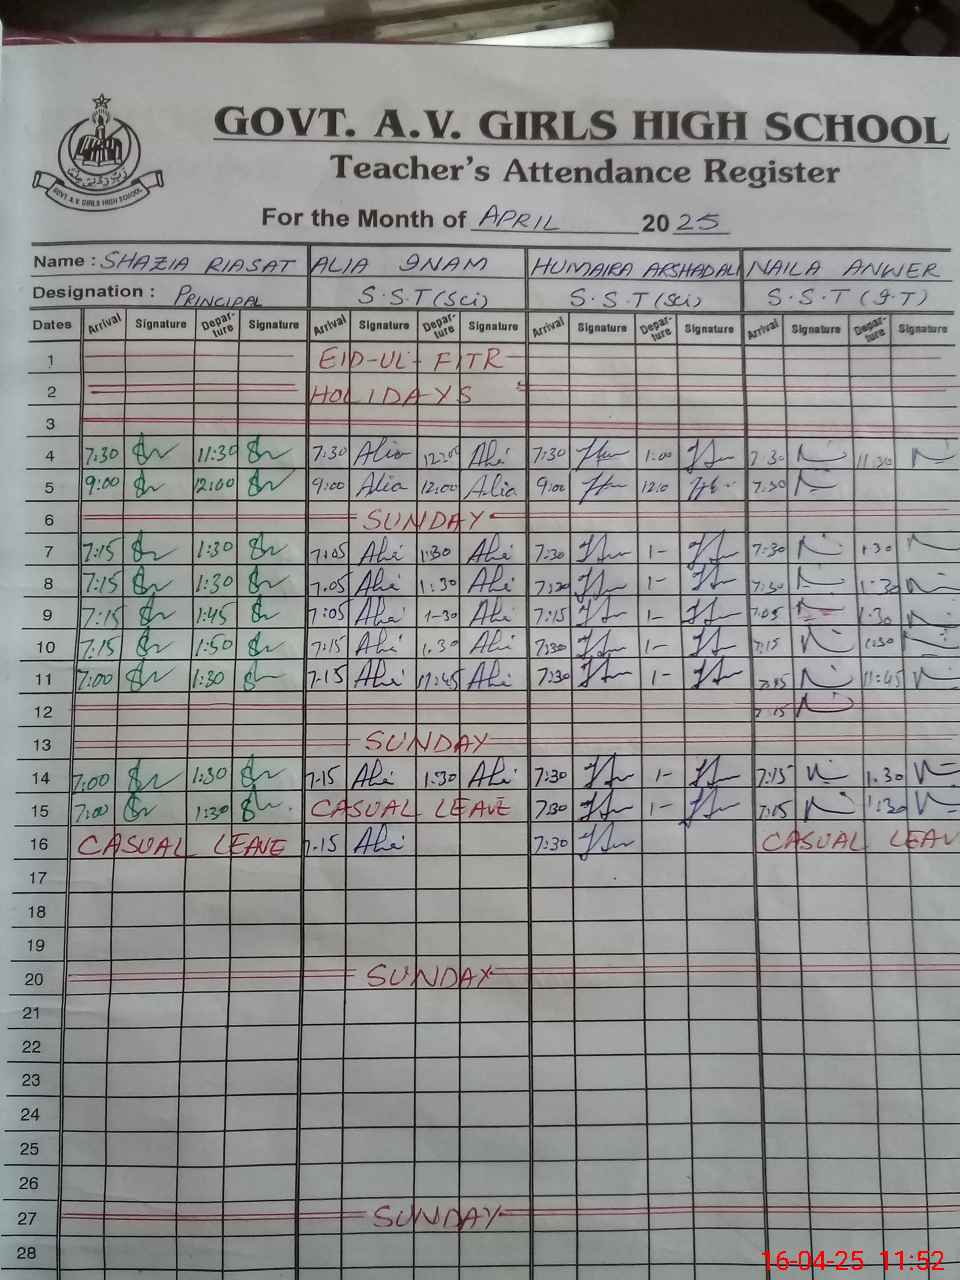 GOVT. A.V. GIRLS HIGH SCHOOL
Teacher's Attendance Register
GOVT A.V. GIRLS HIGH SCHOOL
For the Month of APRIL 20 25
Name : SHAZIA RIASAT ALIA INAM HUMAIRA ARSHADALI NAILA ANWER
Designation : PRINCIPAL S.S.T (Sci) S.S.T (Sci) S.S.T (I.T)
Dates Arrival Signature Depar-ture Signature Arrival Signature Depar-ture Signature Arrival Signature Depar-ture Signature Arrival Signature Depar-ture Signature
1 EID-UL-FITR
2 HOLIDAYS
3
4 7:30 11:30 7:30 Alia Alia 7:30 1:00 7:30 11:30
5 9:00 12:00 9:00 Alia 12:00 Alia 9:00 12:0 7:30
6 SUNDAY
7 7:15 1:30 7:05 Alia 1:30 Alia 7:30 1- 7:30 1:30
8 7:15 1:30 7.05 Alia 1:30 Alia 7:30 1- 7:30 1:30
9 7:15 1:45 7:05 Alia 1-30 Alia 7:15 1- 7:05 1:30
10 7:15 1:50 7:15 Alia 1.30 Alia 7:30 1- 7:15 1:30
11 7:00 1:30 7.15 Alia 11:45 Alia 7:30 1- 7:15 11:45
12 7:15
13 SUNDAY
14 7:00 1:30 7.15 Alia 1:30 Alia 7:30 1- 7:15 1.30
15 7:00 1:30 CASUAL LEAVE 7:30 1- 7:15 1:30
16 CASUAL LEAVE 7.15 Alia 7:30 CASUAL LEAV
17
18
19
20 SUNDAY
21
22
23
24
25
26
27 SUNDAY
28
16-04-25 11:52